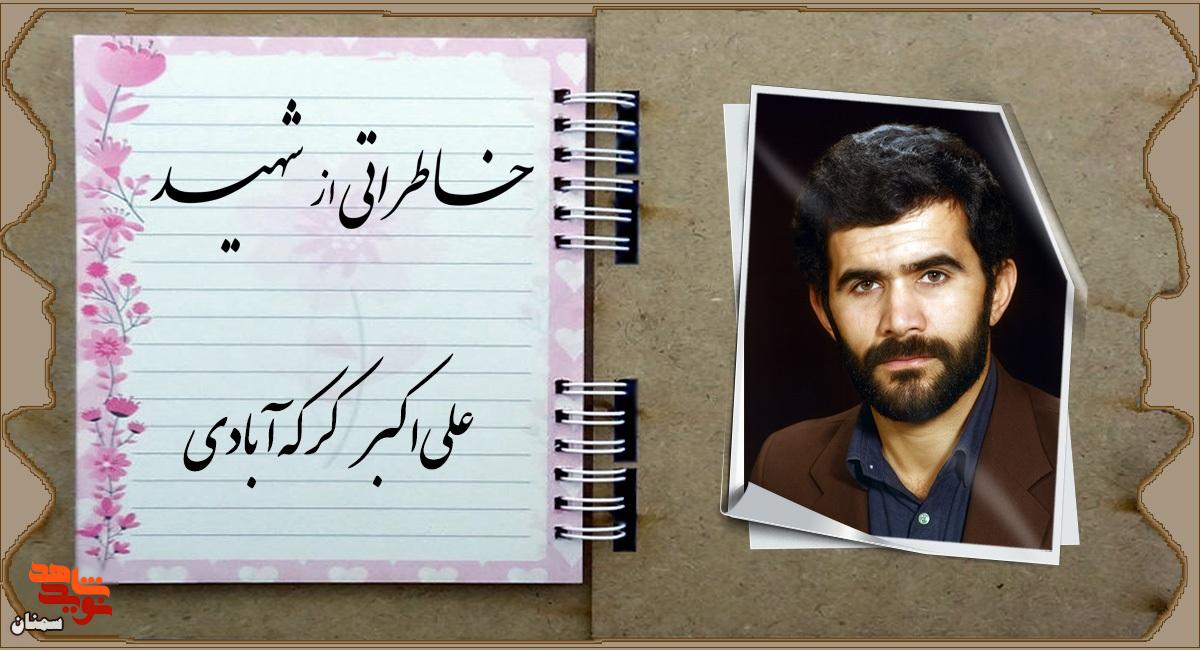 خاطراتی از شهید
علی‌اکبر کرکه‌آبادی
نوید شاهد
سمنان